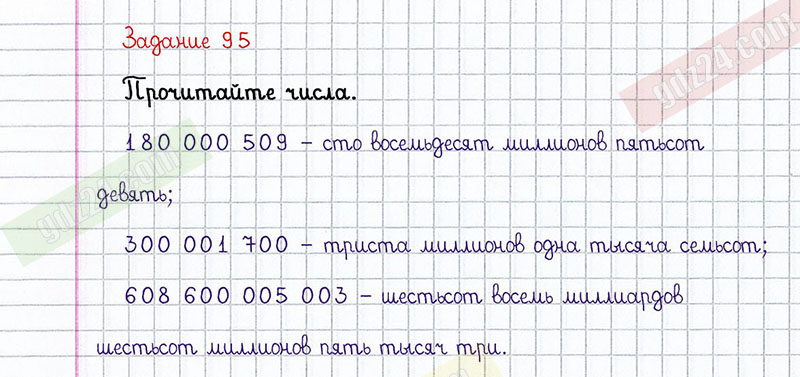 Задание 95
gdz24.com
Прочитайте числа.
180 000 509 – сто восемьдесят миллионов пятьсот
девять;
gdz24.com
300 001 700 – триста миллионов одна тысяча семьсот;
608 600 005 003 – шестьсот восемь миллиардов
шестьсот миллионов пять тысяч три.